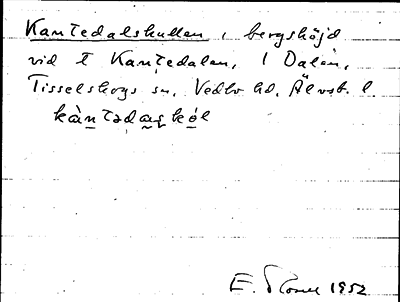 Kantedalskullen, bergshöjd
vid t Kantedalen, 1 Dalen,
Tisselskogs sn, Vedbo hd, Älvsb. l.
kàntədaṣkòl
E. 1952